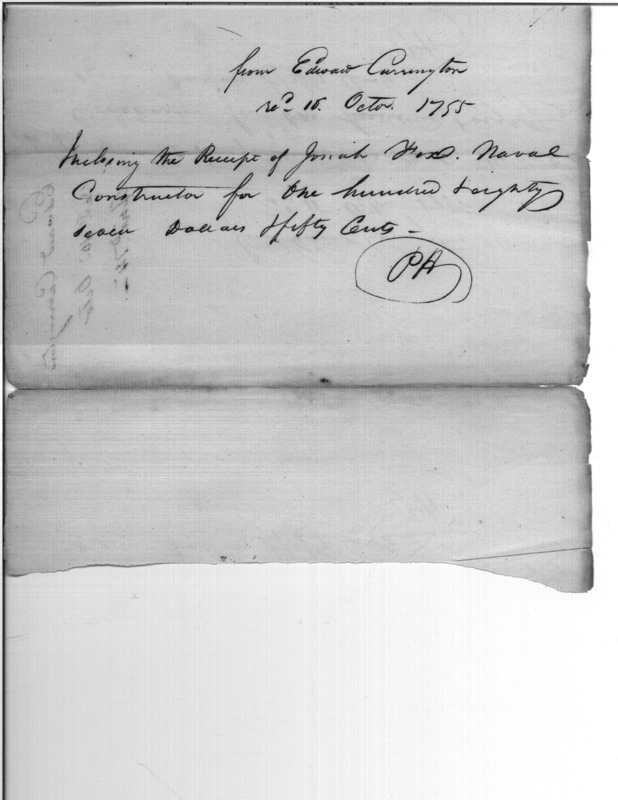 from Edward Carrington
rec.d 10. Octor. 1795
Inclosing the Receipt of Josiah Fox. Naval
Constructor for One hundred & eighty
seven Dollars & fifty Cents –
PH